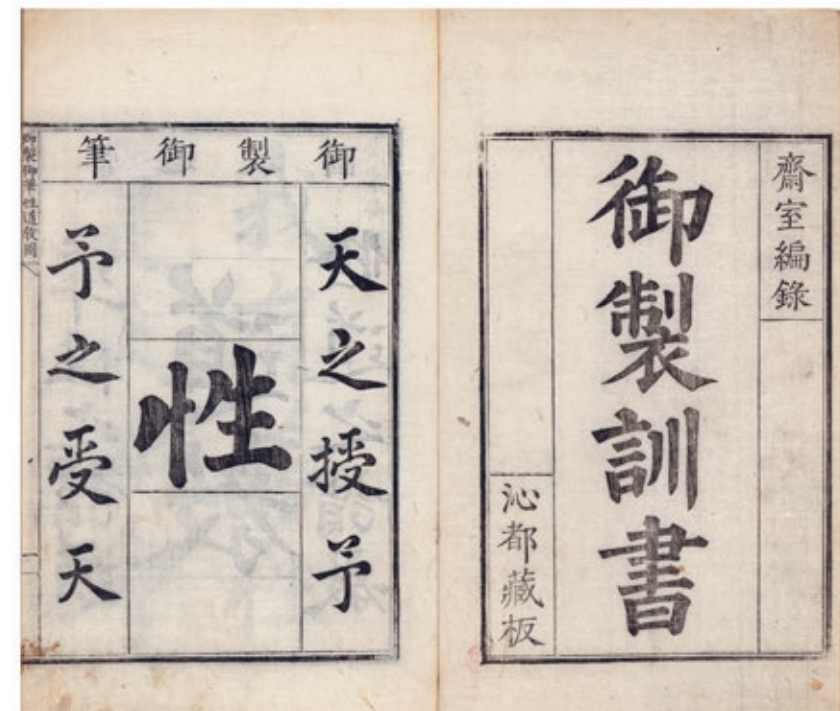 齋室編錄
御製訓書
沁都藏板
御製御筆
天之授予
性
予之受天
御製御筆性道敎圖